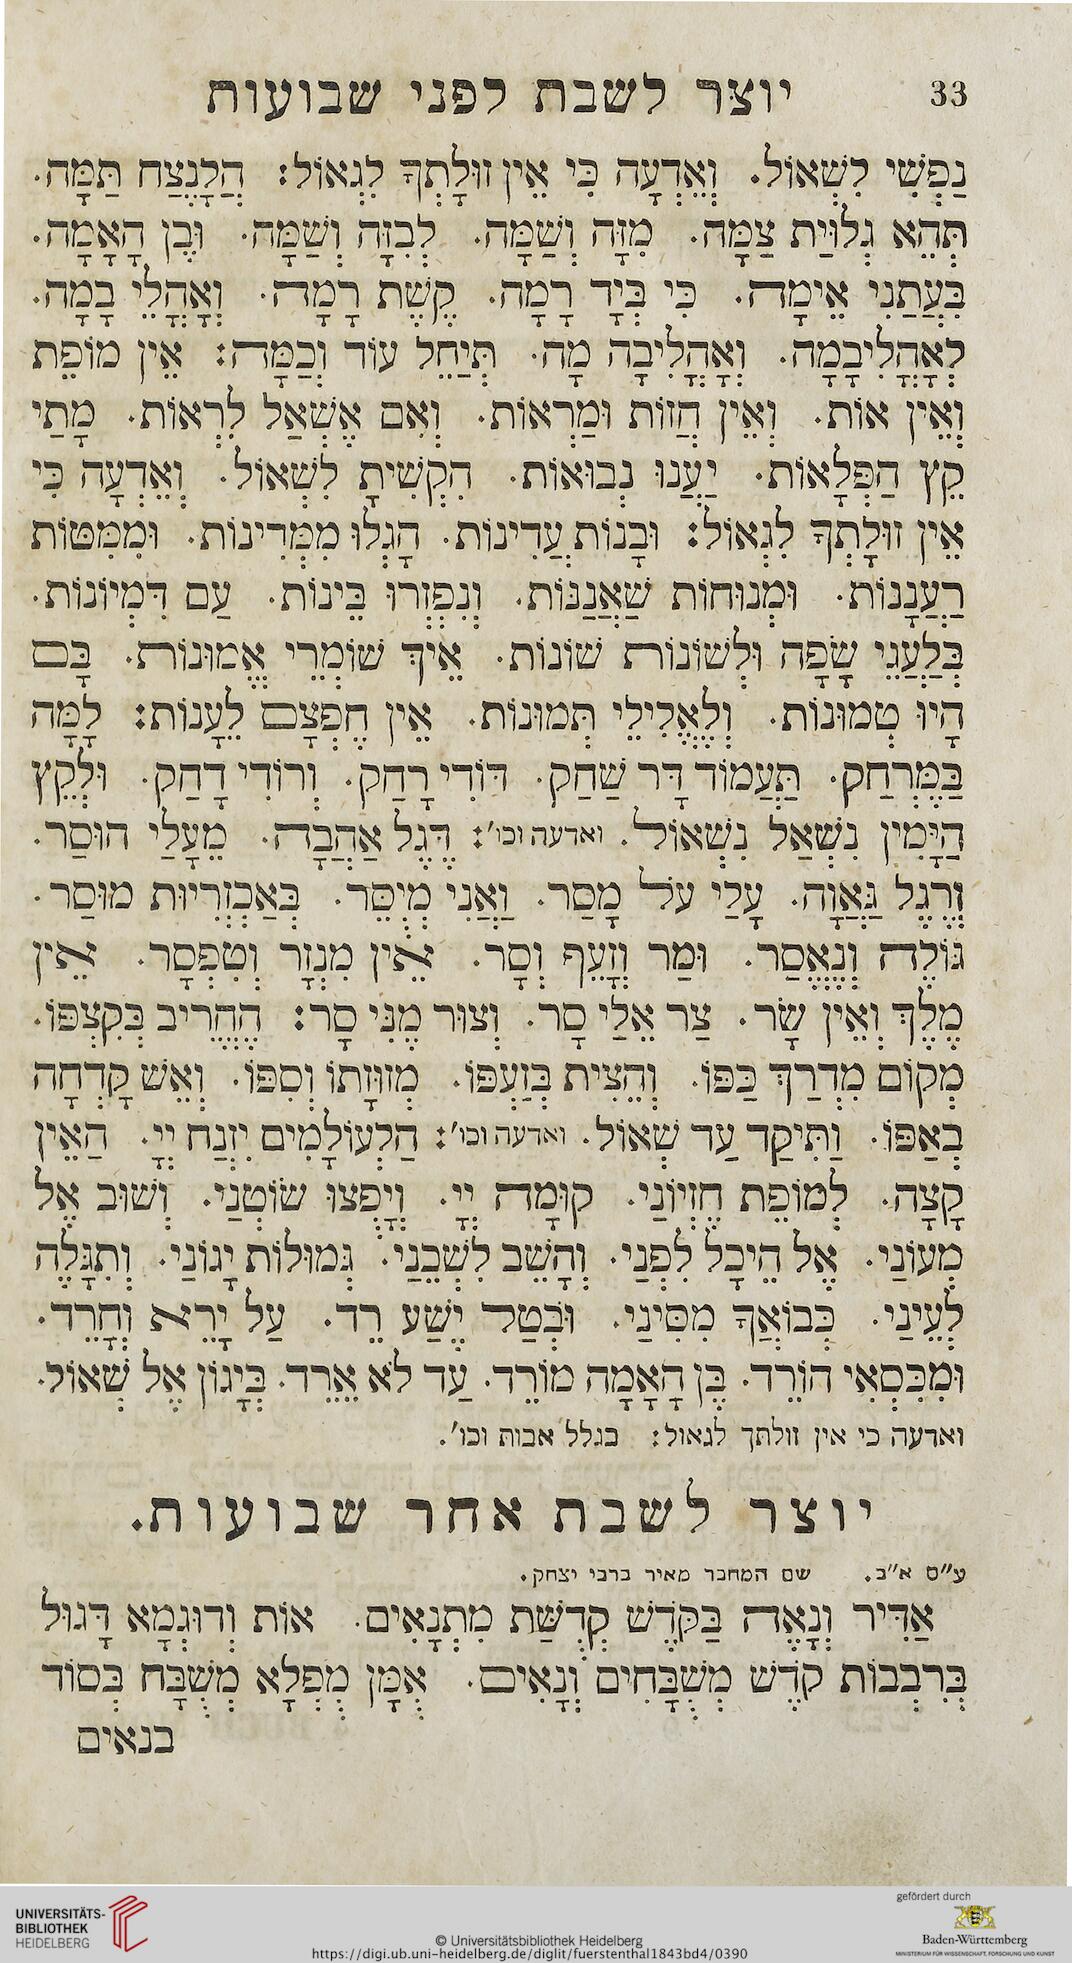 יוצר לשבת לפני שבועות 33
נַפְשִׁי לִשְׁאוֹל. וְאֵדְעָה כִּי אֵין זוּלָתְךָ לִגְאוֹל: הֲלָנֶצַח תַּמָּה.
תְּהֵא גְלוּיַת צַמָּה. מִזָּה וְשַׁמָּה. לְבִזָּה וְשַׁמָּה. וּבֶן הָאָמָה.
בִּעֲתַנִי אֵימָה. כִּי בְּיָד רָמָה. קֶשֶׁת רָמָה. וְאָהֳלֵי בָמָה.
לְאָהֳלִיבָמָה. וְאָהֳלִיבָה מָה. תְּיַחֵל עוֹד וְכַמָּה: אֵין מוֹפֵת
וְאֵין אוֹת. וְאֵין הֲזוֹת וּמַרְאוֹת. וְאִם אֶשְׁאַל לִרְאוֹת. מָתַי
קֵץ הַפְּלָאוֹת. יַעֲנוּ נְבוּאוֹת. הִקְשִׁיתָ לִשְׁאוֹל. וְאֵדְעָה כִּי
אֵין זוּלָתְךָ לִגְאוֹל: וּבָנוֹת עֲדִינוֹת. הָגְלוּ מִמְּדִינוֹת. וּמִמִּטּוֹת
רַעֲנָנּוֹת. וּמְנוּחוֹת שַׁאֲנַנּוֹת. וְנִפְזְרוּ בֵּינוֹת. עַם דִּמְיוֹנוֹת.
בְּלַעֲגֵי שָׂפָה וּלְשׁוֹנוֹת שׁוֹנוֹת. אֵיךְ שׁוֹמְרֵי אֱמוּנוֹת. בָּם
הָיוּ טְמוּנוֹת. וְלֶאֱלִילֵי תְּמוּנוֹת. אֵין חֶפְצָם לַעֲנוֹת: לָמָּה
בַּמֶּרְחַק. תַּעֲמוֹד דָּר שַׁחַק. דּוֹדִי רָחַק. וְרוֹדִי דָחַק. וּלְקֵץ
הַיָּמִין נִשְׁאַל נִשְׁאוֹל. ואדעה וכו׳: דֶּגֶל אַהֲבָה. מֵעָלַי הוּסַר.
וְרֶגֶל גַּאֲוָה. עָלַי עֹל מָסַר. וַאֲנִי מְיֻסָּר. בְּאַכְזְרִיּוּת מוּסַר.
גּוֹלֶה וְנֶאֱסַר. וּמַר וְזָעֵף וְסָר. אֵין מִנְזָר וְטִפְסָר. אֵין
מֶלֶךְ וְאֵין שָׂר. צַר אֵלַי סָר. וְצוּר מֶנִּי סָר: הֶחֱרִיב בְּקִצְפּוֹ.
מְקוֹם מִדְרַךְ כַּפּוֹ. וְהֱצִית בְּזַעְפּוֹ. מְזוּזָתוֹ וְסִפּוֹ. וְאֵשׁ קָדְחָה
בְאַפּוֹ. וַתִּיקַד עַד שְׁאוֹל. ואדעה וכו׳: הַלְעוֹלָמִים יִזְנַח יְיָ. הַאֵין
קָצָה. לְמוֹפֵת חֶזְיוֹנַי. קוּמָה יְיָ. וְיָפֻצוּ שׂוֹטְנַי. וְשׁוּב אֶל
מְעוֹנַי. אֶל הֵיכָל לִפְנַי. וְהָשֵׁב לִשְׁכֵנַי. גְּמוּלוֹת יָגוֹנַי. וְתִגָּלֶה
לְעֵינַי. כְּבוֹאֲךָ מִסִּינַי. וּבְטַל יֶשַׁע רֵד. עַל יָרֵא וְחָרֵד.
וּמִכִּסְאִי הוֹרֵד. בֶּן הָאָמָה מוֹרֵד. עַד לֹא אֵרֵד. בְּיָגוֹן אֶל שְׁאוֹל.
ואדעה כי אין זולתך לגאול: בגלל אבות וכו׳.
יוצר לשבת אחר שבועות.
ע״ס א״ב. שם המחבר מאיר ברבי יצחק.
אַדִּיר וְנָאֶה בַּקֹּדֶשׁ קְדֻשַּׁת מִתְנָאִים. אוֹת וְדוּגְמָא דָּגוּל
בְּרִבְבוֹת קֹדֶשׁ מְשֻׁבָּחִים וְנָאִים. אָמָן מֻפְלָא מְשֻׁבָּח בְּסוֹד
בנאים
UNIVERSITÄTS-
BIBLIOTHEK
HEIDELBERG
© Universitätsbibliothek Heidelberg
https://digi.ub.uni-heidelberg.de/diglit/fuerstenthal1843bd4/0390
gefördert durch
Baden-Württemberg
MINISTERIUM FÜR WISSENSCHAFT, FORSCHUNG UND KUNST